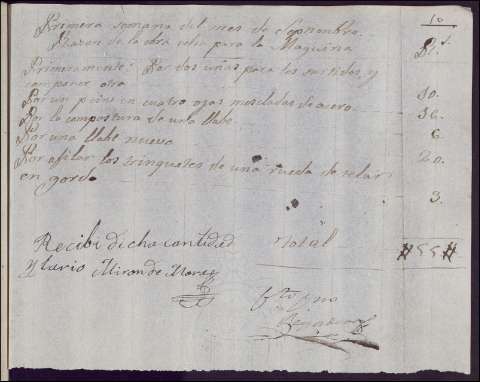 10
Primera semana del mes de Septiembre.
Razon de la obra echa para la Maquina
Rs.
Primeramente: Por dos uñas para los surtidos, y
componer otra
10.
Por un piñon en cuatro ojas mescladas de acero
36.
Por la compostura de una llabe
6
Por una llabe nueva
20.
Por afilar los trinquetes de una rueda de relar
en gordo
3.
Recibi dicha cantidad
Total
#55#
Ylario Miron de Mora